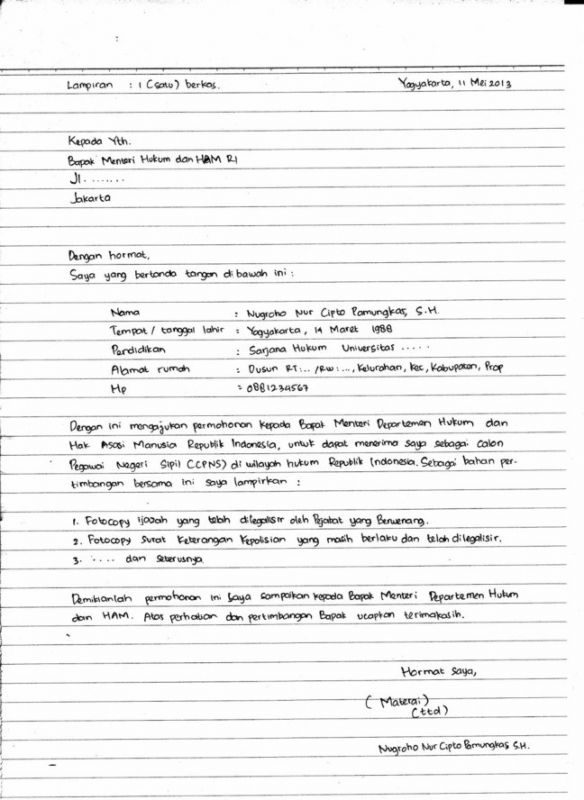 Lampiran : 1 (satu) berkas. Yogyakarta, 11 Mei 2013
Kepada Yth.
Bapak Menteri Hukum dan HAM RI
Jl. ........
Jakarta
Dengan hormat,
Saya yang bertanda tangan dibawah ini :
Nama : Nugroho Nur Cipto Pamungkas, S.H.
Tempat / tanggal lahir : Yogyakarta, 14 Maret 1988
Pendidikan : Sarjana Hukum Universitas .....
Alamat rumah : Dusun RT:.. /RW:..., Kelurahan, Kec, Kabupaten, Prop
Hp : 0881234567
Dengan ini mengajukan permohonan kepada Bapak Menteri Departemen Hukum dan
Hak Asasi Manusia Republik Indonesia, untuk dapat menerima saya sebagai Calon
Pegawai Negeri Sipil (CPNS) di wilayah hukum Republik Indonesia. Sebagai bahan per-
timbangan bersama ini saya lampirkan :
1. Fotocopy ijazah yang telah dilegalisir oleh Pejabat yang Berwenang.
2. Fotocopy Surat Keterangan Kepolisian yang masih berlaku dan telah dilegalisir.
3. ..... dan seterusnya
Demikianlah permohonan ini Saya sampaikan kepada Bapak Menteri Departemen Hukum
dan HAM. Atas perhatian dan pertimbangan Bapak ucapkan terimakasih.
Hormat Saya,
( Materai )
(ttd)
Nugroho Nur Cipto Pamungkas S.H.